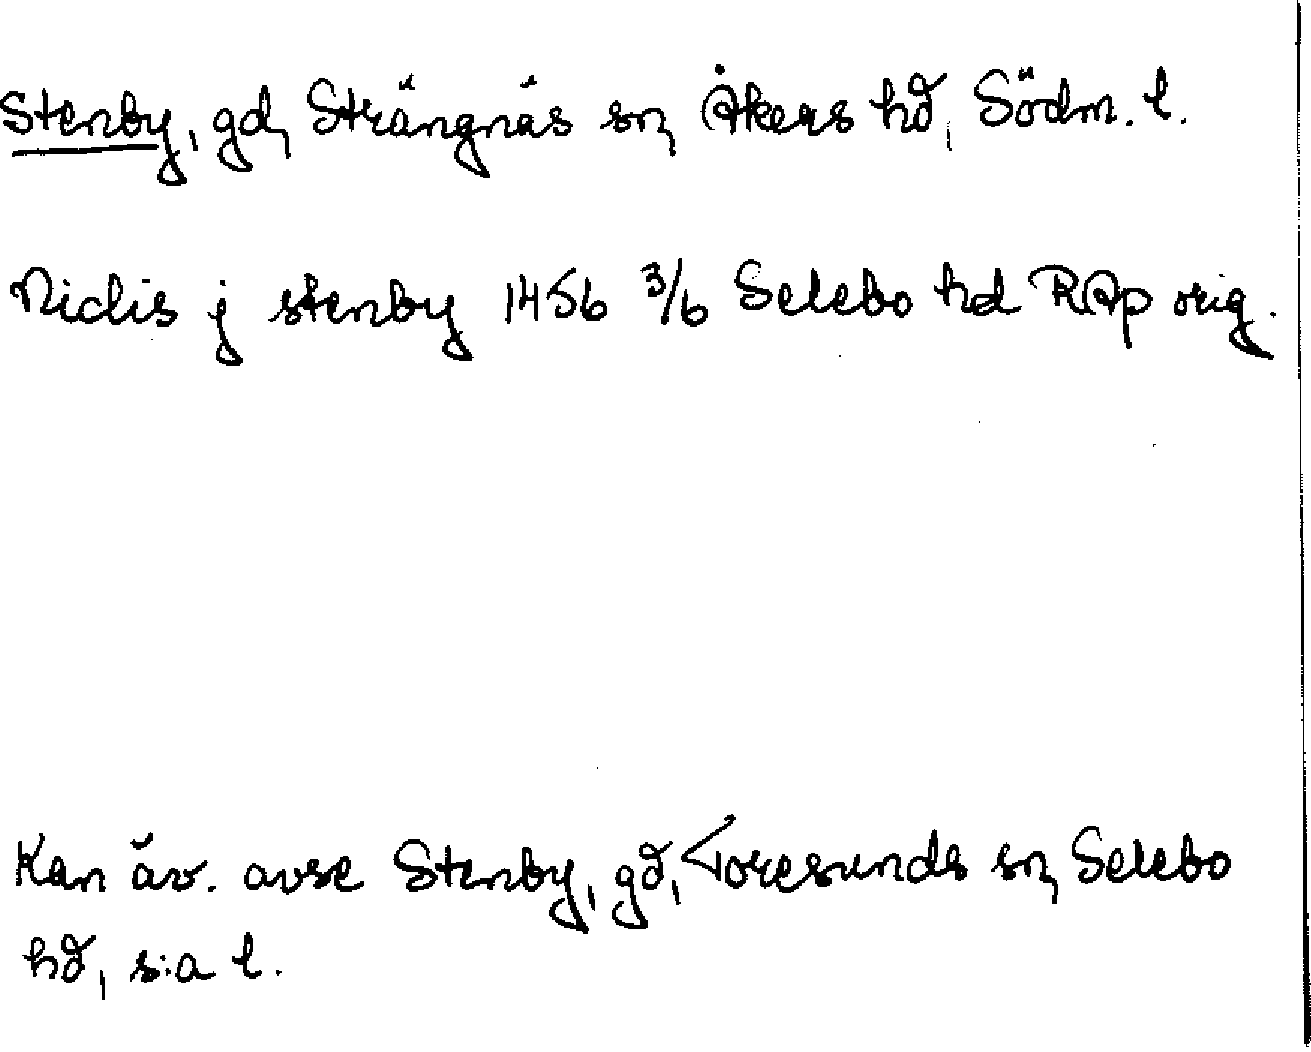 Stenby, gd, Strängnäs sn, Åkers hd, Södm. l.
Niclis j stenby 1456 3/6 Selebo hd RAp orig.
Kan äv. avse Stenby, gd, Toresunds sn, Selebo
hd, s:a l.